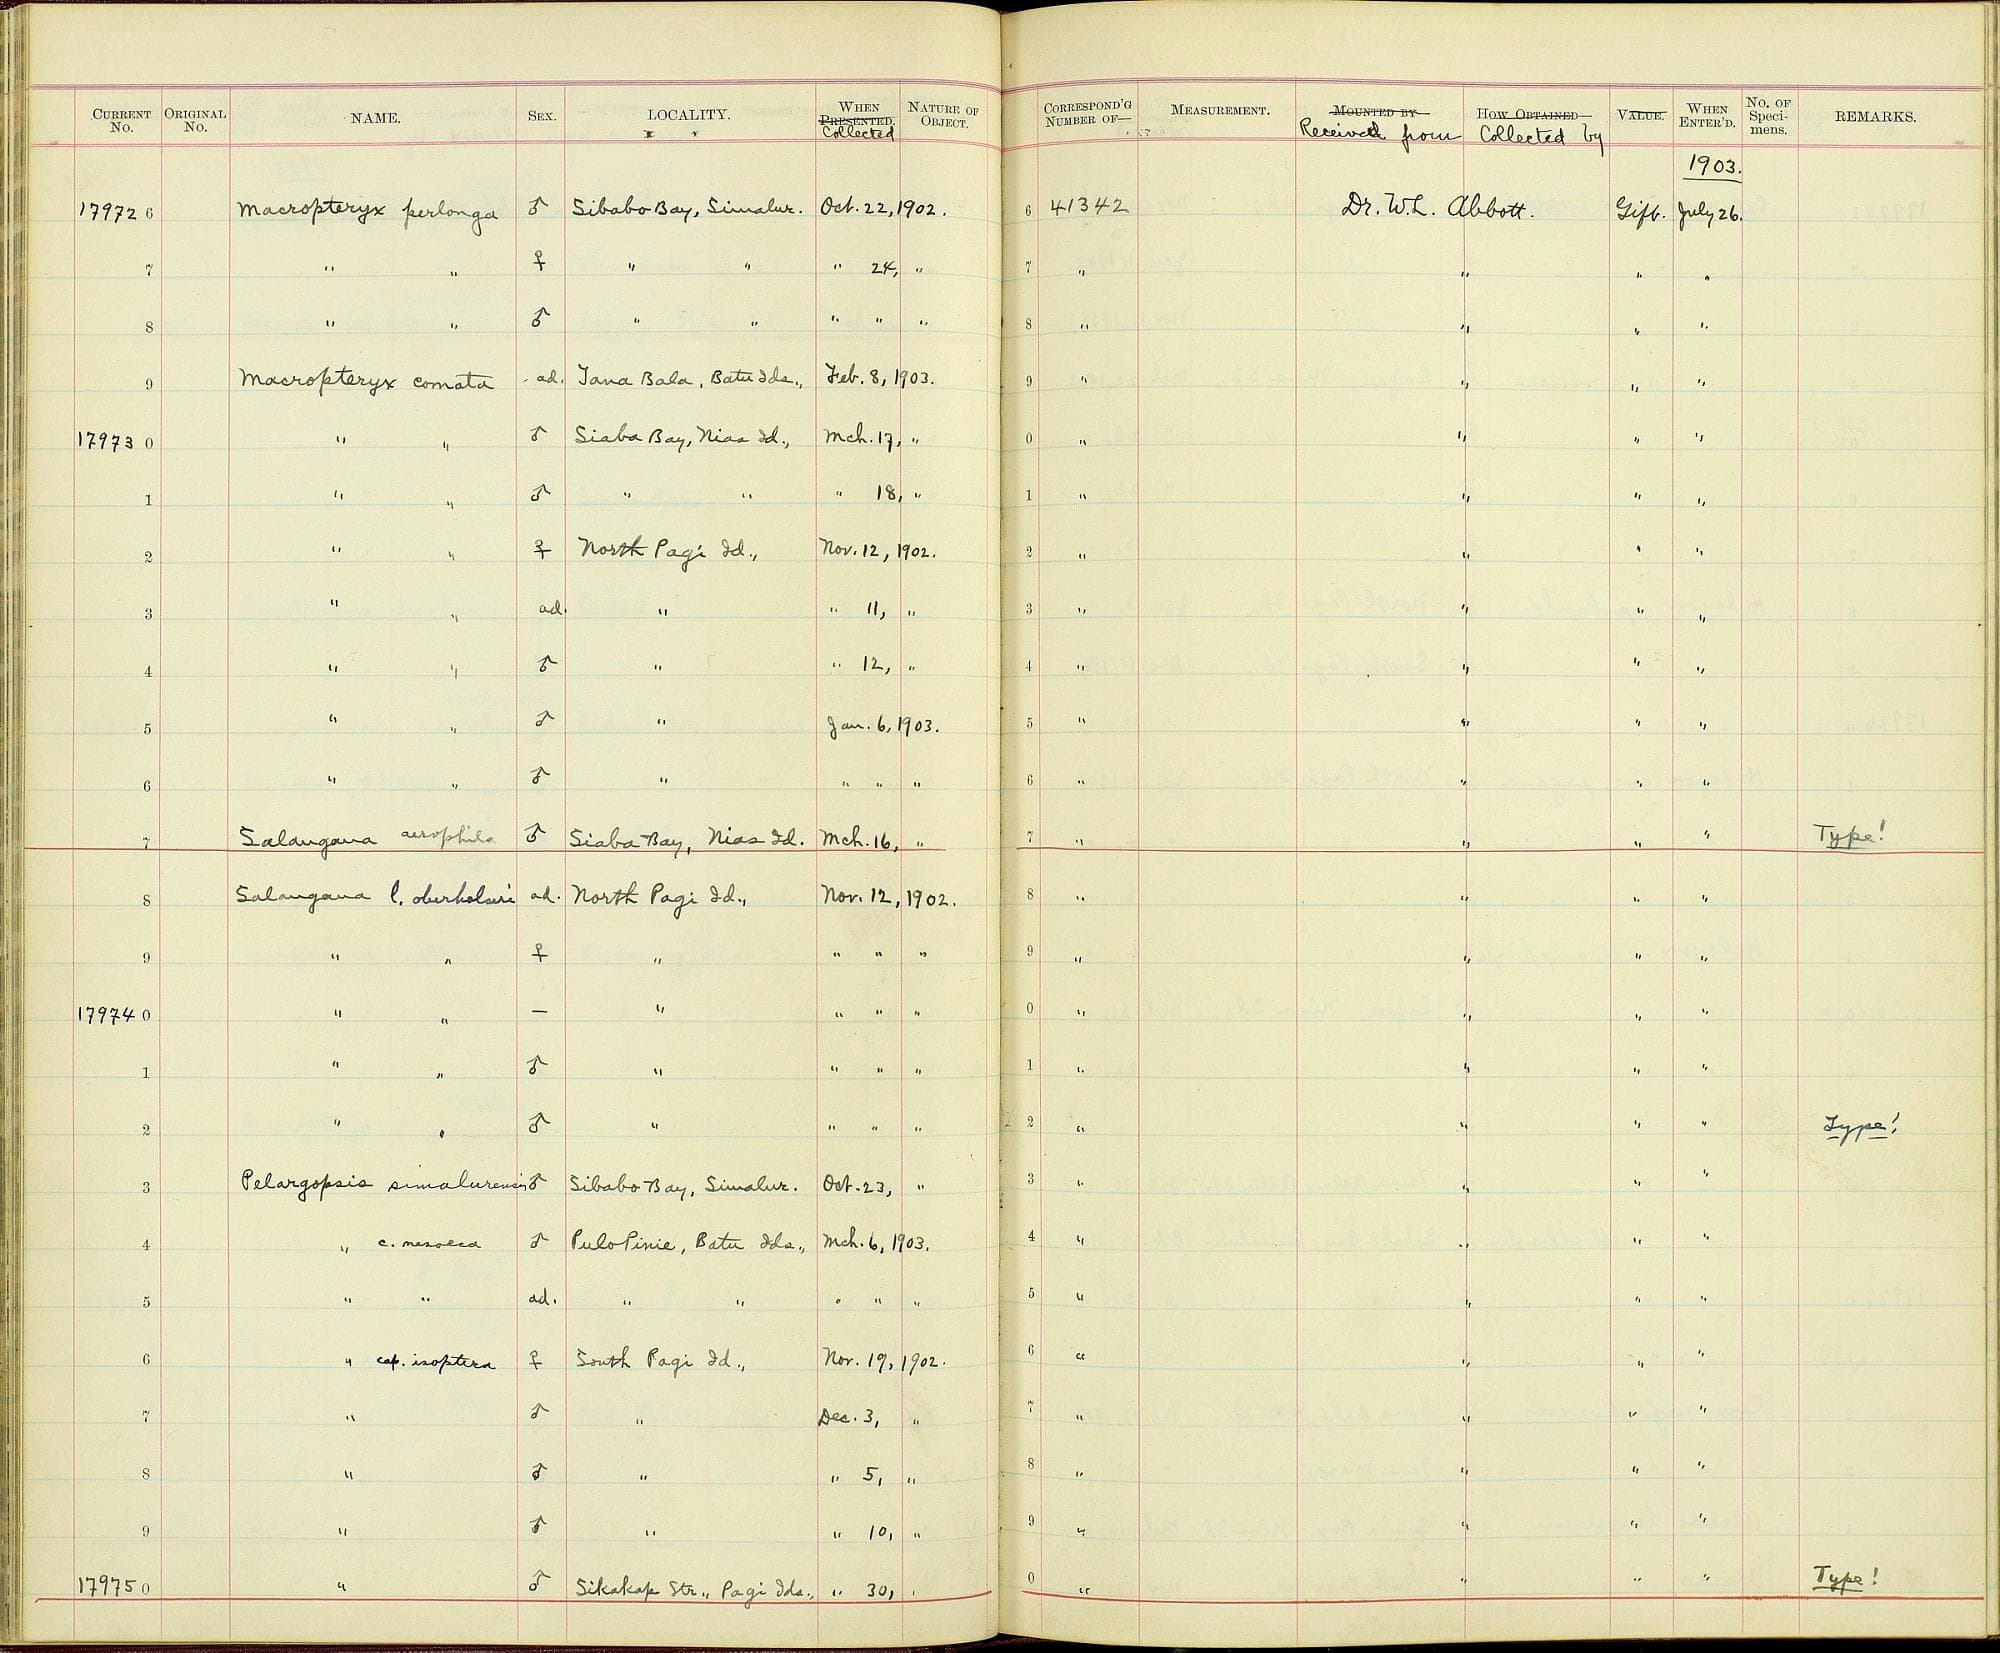 CURRENT No. ORIGINAL No. NAME. SEX. LOCALITY. WHEN PRESENTED. Collected NATURE OF OBJECT. CORRESPOND'G NUMBER OF— MEASUREMENT. MOUNTED BY Received from HOW OBTAINED Collected by VALUE. WHEN ENTER'D. No. OF Speci- mens. REMARKS.
1903.
17972 6 Macropteryx perlonga ♂ Sibabo Bay, Simalur. Oct. 22, 1902. 6 41342 Dr. W. L. Abbott. Gift. July 26.
7 " " ♀ " " " 24, " 7 " " " "
8 " " ♂ " " " " " 8 " " " "
9 Macropteryx comata ad. Tana Bala, Batu Ids., Feb. 8, 1903. 9 " " " "
17973 0 " " ♂ Siaba Bay, Nias Id., Mch. 17, " 0 " " " "
1 " " ♂ " " " 18, " 1 " " " "
2 " " ♀ North Pagi Id., Nov. 12, 1902. 2 " " " "
3 " " ad. " " 11, " 3 " " " "
4 " " ♂ " " 12, " 4 " " " "
5 " " ♂ " Jan. 6, 1903. 5 " " " "
6 " " ♂ " " " " 6 " " " "
7 Salangana aerophila ♂ Siaba Bay, Nias Id. Mch. 16, " 7 " " " " Type!
8 Salangana l. oberholseri ad. North Pagi Id., Nov. 12, 1902. 8 " " " "
9 " " ♀ " " " " 9 " " " "
17974 0 " " — " " " " 0 " " " "
1 " " ♂ " " " " 1 " " " "
2 " " ♂ " " " " 2 " " " " Type!
3 Pelargopsis simalurensis ♂ Sibabo Bay, Simalur. Oct. 23, " 3 " " " "
4 " c. nesoeca ♂ Pulo Pinie, Batu Ids., Mch. 6, 1903. 4 " " " "
5 " " ad. " " " " " 5 " " " "
6 " cap. isoptera ♀ South Pagi Id., Nov. 19, 1902. 6 " " " "
7 " ♂ " Dec. 3, " 7 " " " "
8 " ♂ " " 5, " 8 " " " "
9 " ♂ " " 10, " 9 " " " "
17975 0 " ♂ Sikakap Str., Pagi Ids., " 30, " 0 " " " " Type!